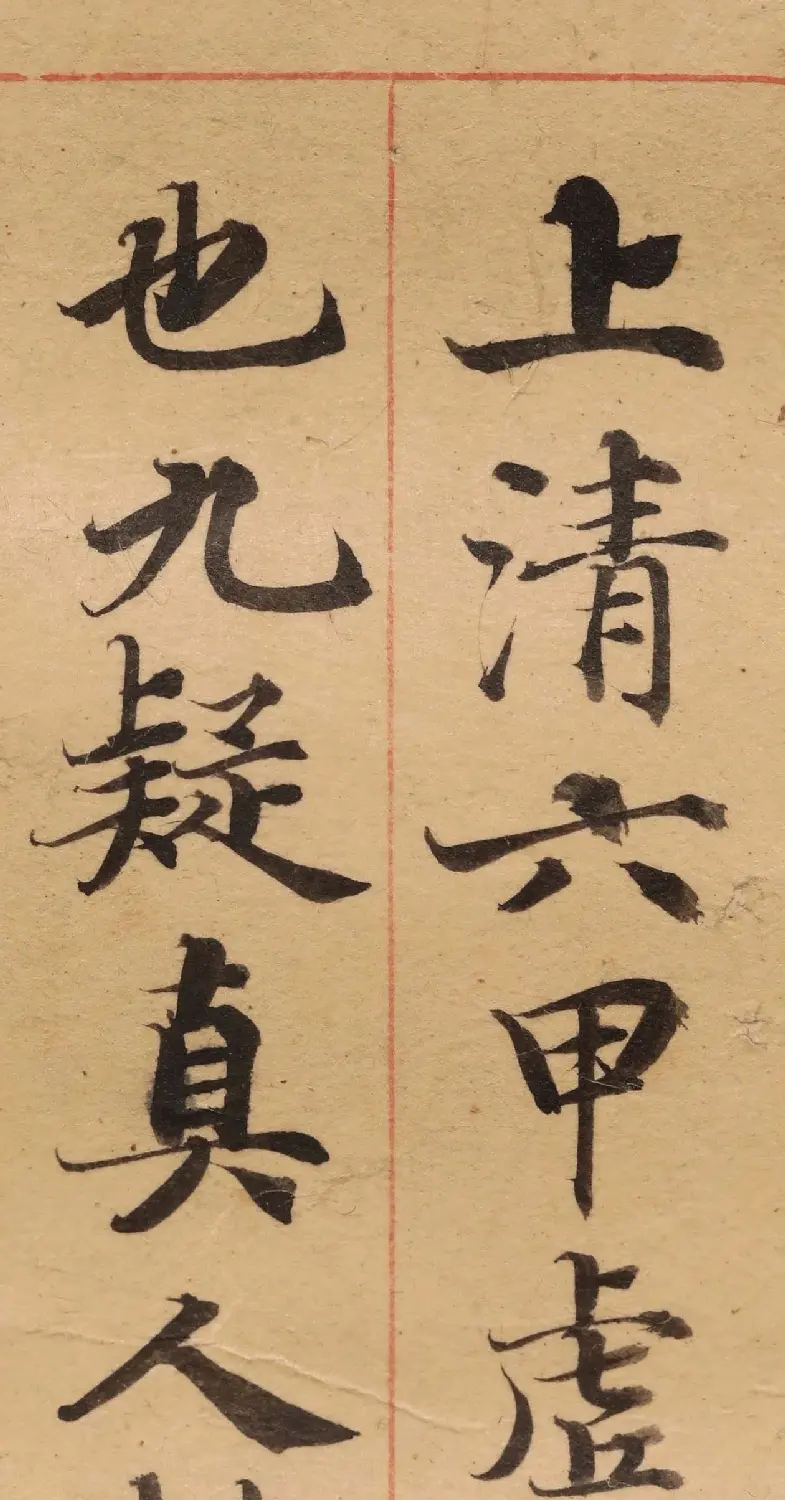 上清六甲虚
也九疑真人